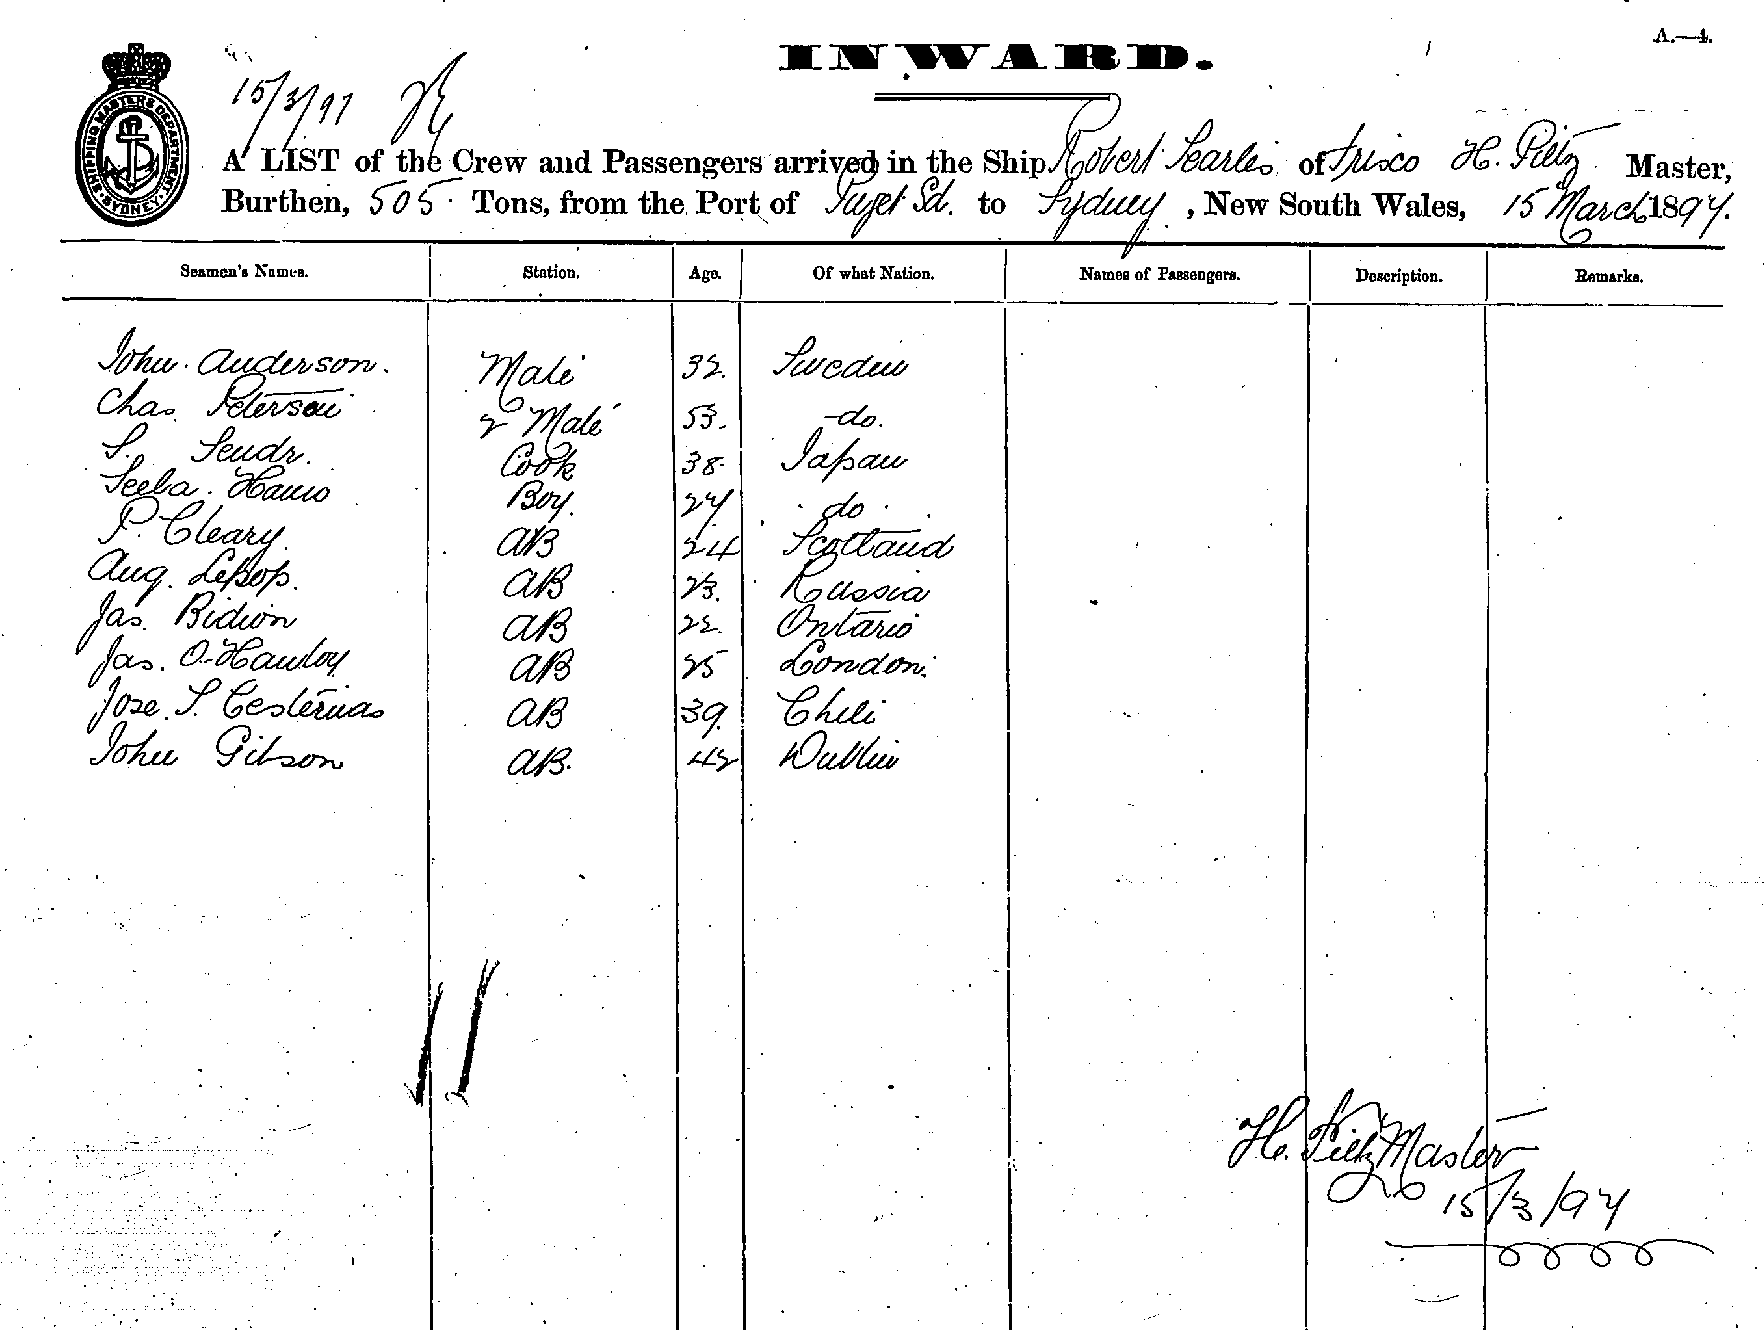 A.—4.
INWARD.
15/3/97
A LIST of the Crew and Passengers arrived in the Ship Robert Searles of Frisco H. Piltz Master,
Burthen, 505 Tons, from the Port of Puget Sd. to Sydney, New South Wales, 15 March 1897.
SHIPPING MASTERS DEPARTMENT
SYDNEY
Seamen's Names. Station. Age. Of what Nation. Names of Passengers. Description. Remarks.
John Anderson. Mate 32. Sweden
Chas. Peterson 2 Mate 53. -do.
S. Sendr. Cook 38. Japan
Seeba. Boy. 27 do
P. Cleary. AB 24 Scotland
Aug. AB 23. Russia
Jas. Bidion AB 22. Ontario
Jas. AB 25 London.
Jose. S. Cesternas AB 39. Chili
John Gibson AB. 42 Dublin
H. Piltz Master
15/3/97